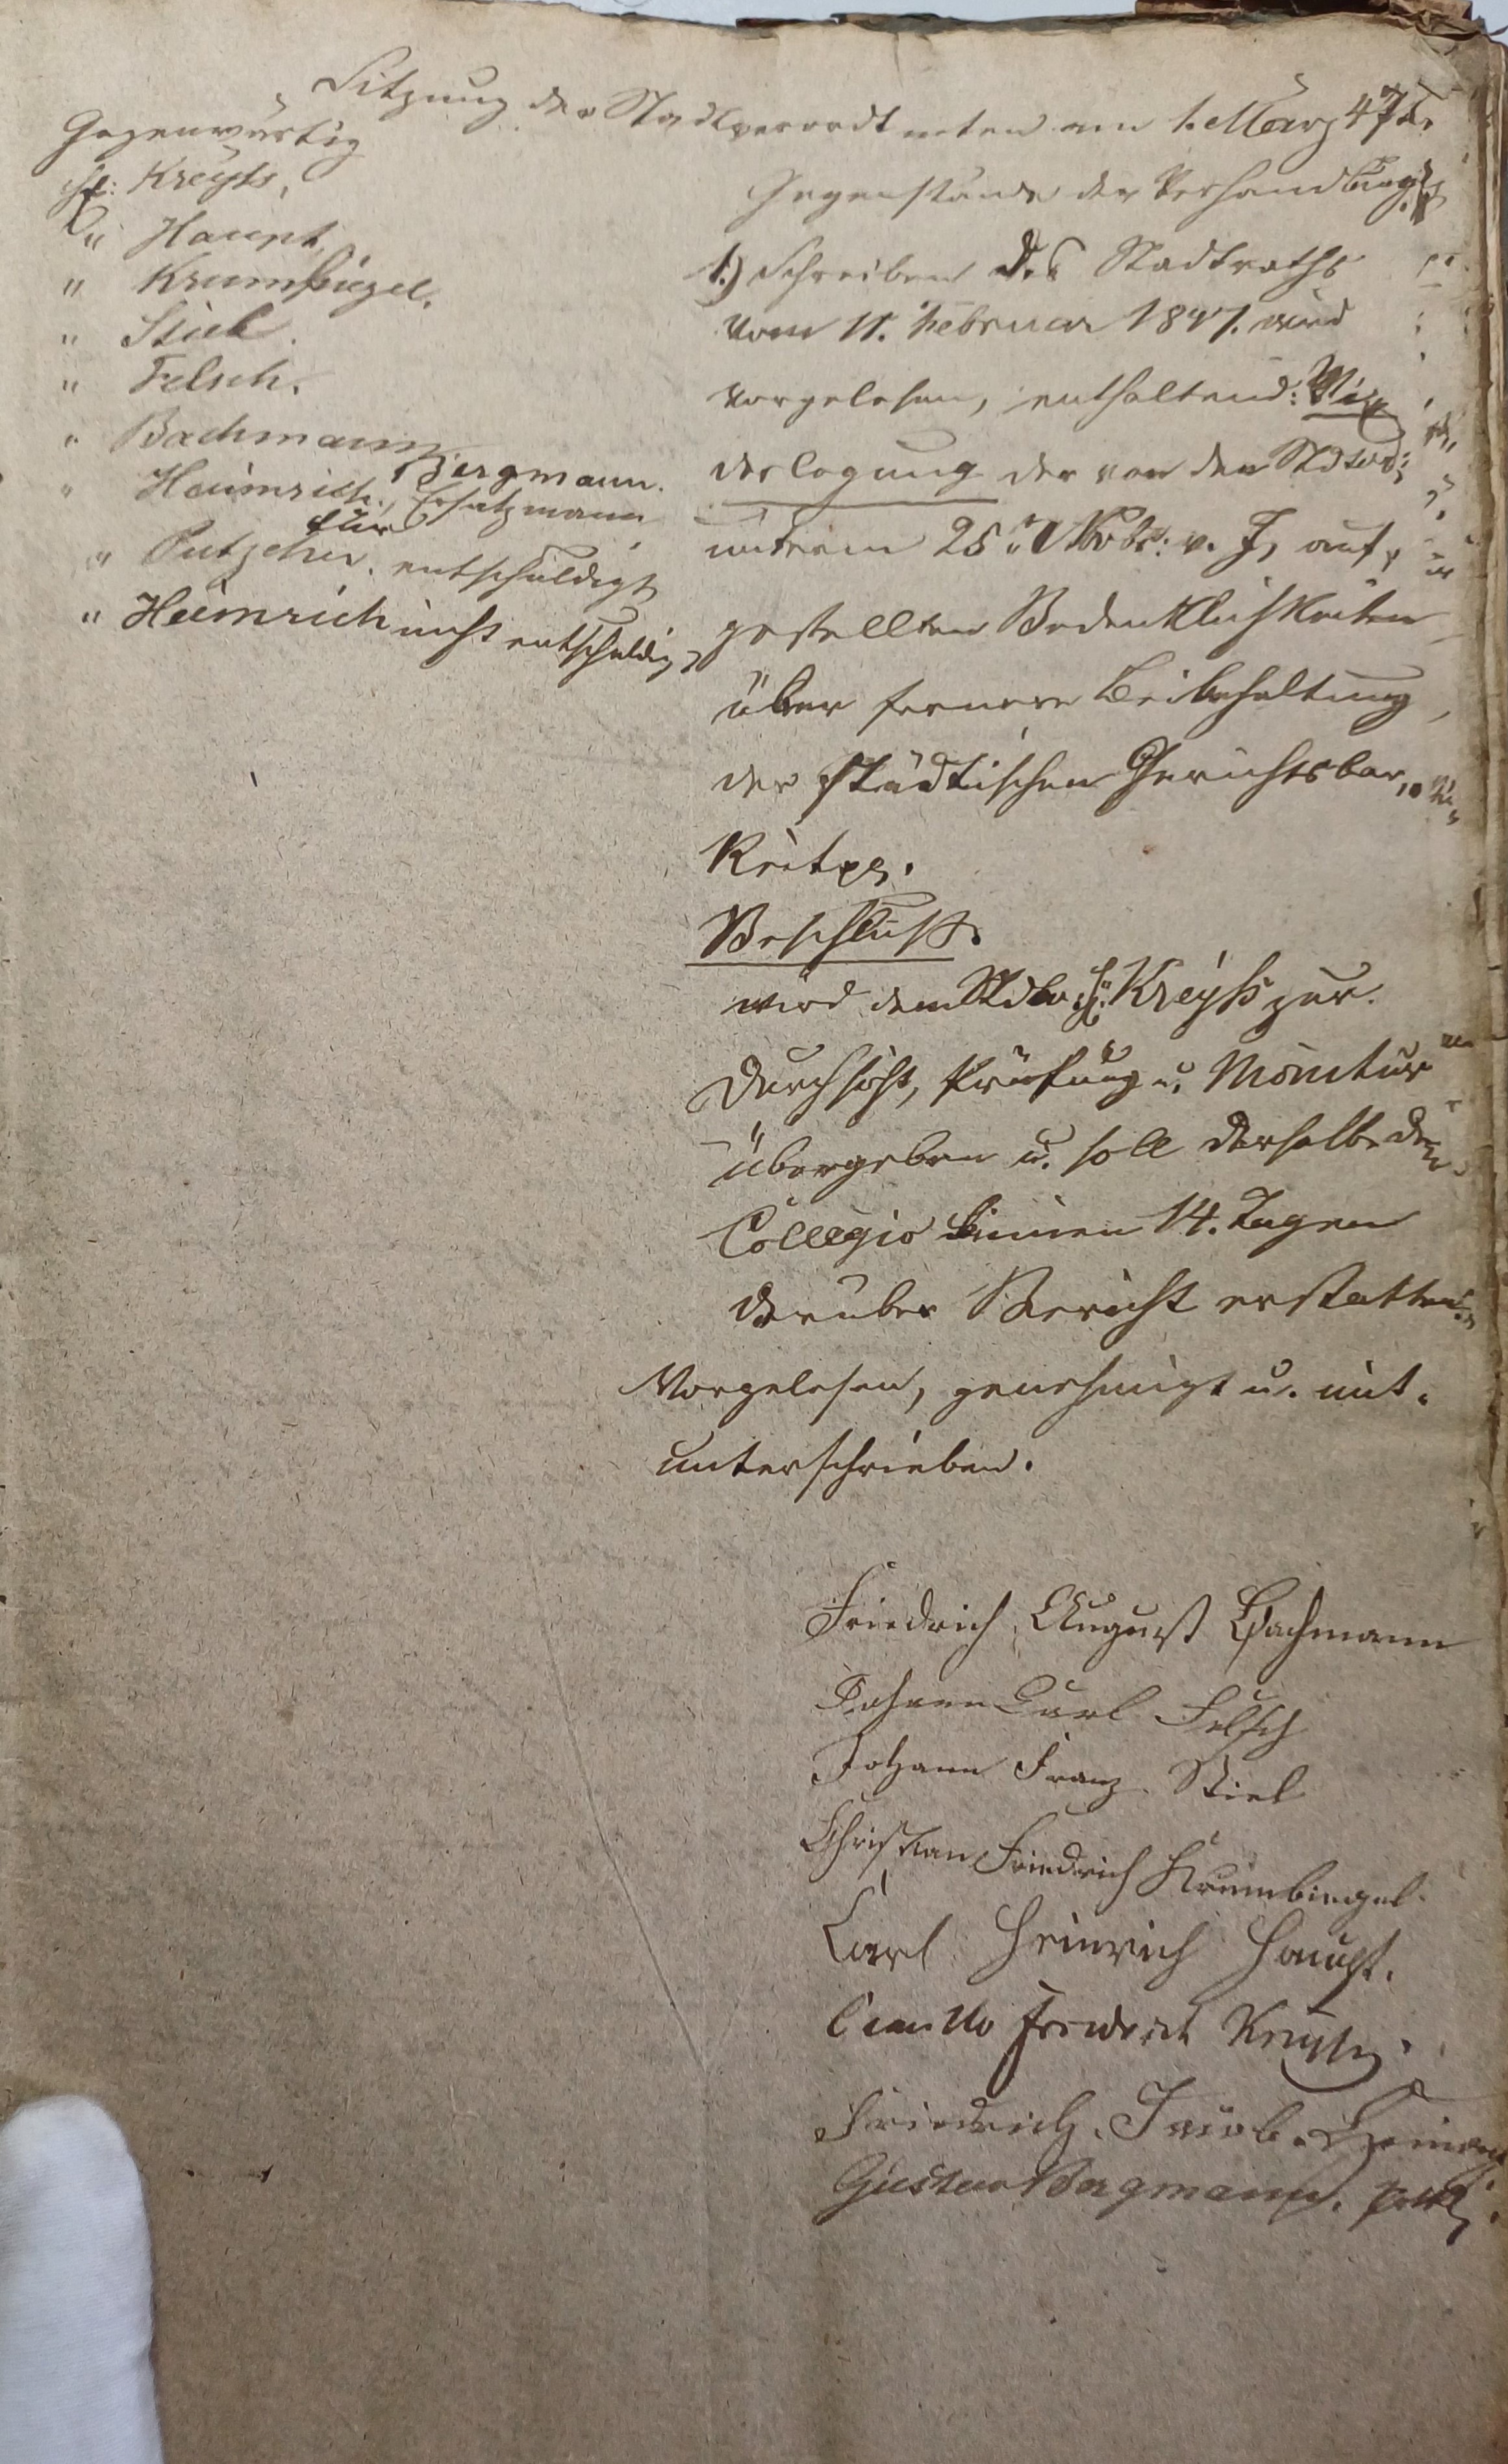 Sitzung der Stadtverordneten am 1. März 47.
Gegenwärtig
H: Kreyß,
" Haupt,
" Krumbiegel,
" Stiel.
" Felsch.
" Bachmann
" Heimrich, Bergmann.
Ersatzmann
für
" Putzcher. entschuldigt
" Heimrich nicht entschuldig
Gegenstände der Verhandlung
1.) Schreiben des Stadtraths
vom 11. Februar 1847. wird
vorgelesen, enthaltend: Wie
derlegung der von den Stdtvd:
unterm 25. Novbr: v. J, auf,
gestellten Bedenklichkeiten
über fernere Beibehaltung
der städtischen Gerichtsbar,
keit
Beschluß.
wird dem Stdtv H: Kreyß zur
Durchsicht, Prüfung u. Monitur
übergeben u. soll derselbe dem
Collegio binnen 14. Tagen
darüber Bericht erstatten.
Vorgelesen, genehmigt u. mit.
unterschrieben.
Friedrich August Bachmann
Johann Carl Felsch
Johann Franz Stiel
Christian Friedrich Krumbiegel.
Carl Heinrich Haupt.
Camillo Friedrich Kreyß
Friedrich Jacob
Gustav Bergmann.